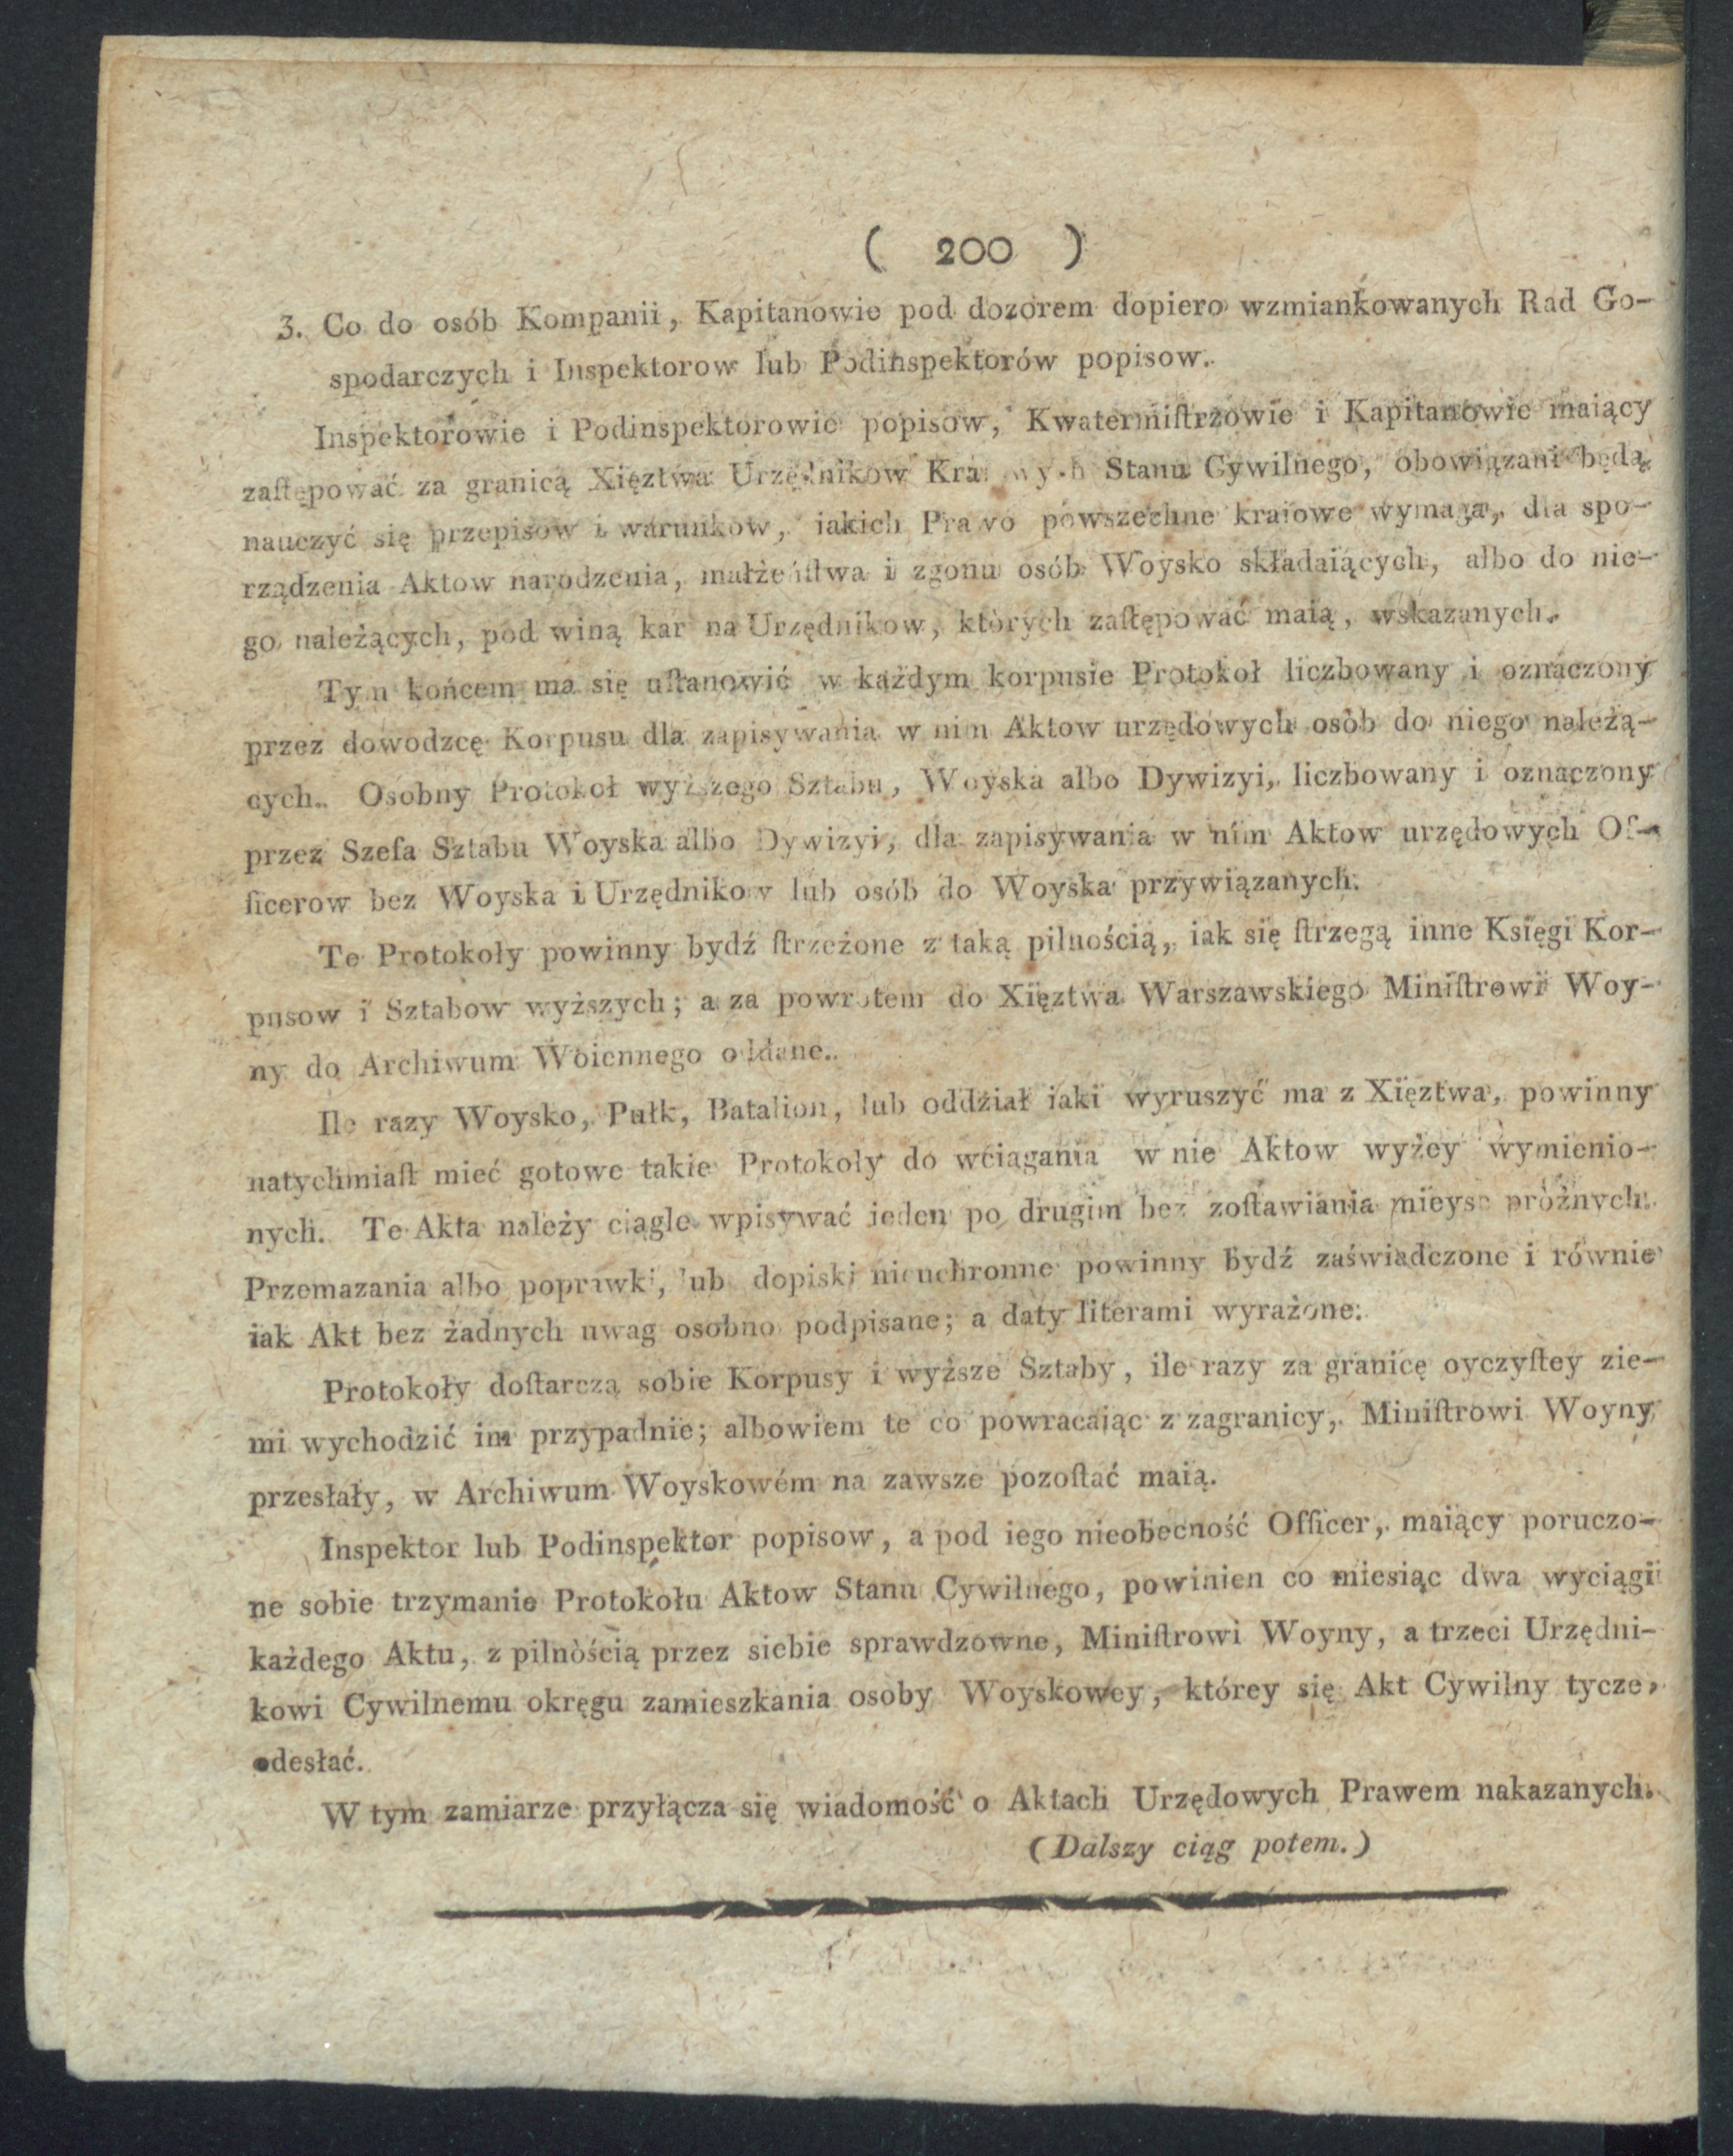 ( 200 )
3. Co do osób Kompanii, Kapitanowie pod dozorem dopiero wzmiankowanych Rad Go-
spodarczych i Inspektorow lub Podinspektorów popisow.
Inspektorowie i Podinspektorowie popisow, Kwatermiſtrzowie i Kapitanowie maiący
zaſtępować za granicą Xięztwa Urzędnikow Stanu Cywilnego, obowiązani będą
nauczyć się przepisow i warunkow, iakich Prawo powszechne kraiowe wymaga, dla spo-
rządzenia Aktow narodzenia, małżeńſtwa i zgonu osób Woysko składaiących, albo do nie-
go należących, pod winą kar na Urzędnikow, których zaſtępować maią, wskazanych.
Tym końcem ma się uſtanowić w każdym korpusie Protokoł liczbowany i oznaczony
przez dowodzcę Korpusu dla zapisywania w nim Aktow urzędowych osòb do niego należą-
cych. Osobny Protokoł wyższego Sztabu, Woyska albo Dywizyi, liczbowany i oznaczony
przez Szefa Sztabu Woyska albo Dywizyi, dla zapisywania w nim Aktow urzędowych Of-
ficerow bez Woyska i Urzędnikow lub osób do Woyska przywiązanych.
Te Protokoły powinny bydź ſtrzeżone z taką pilnością, iak się ſtrzegą inne Księgi Kor-
pusow i Sztabow wyższych; a za powrotem do Xięztwa Warszawskiego Miniſtrowi Woy-
ny do Archiwum Woiennego oddane.
Ile razy Woysko, Pułk, Batalion, lub oddział iaki wyruszyć ma z Xięztwa, powinny
natychmiaſt mieć gotowe takie Protokoły do wciągania w nie Aktow wyżey wymienio-
nych. Te Akta należy ciągle wpisywać ieden po drugim bez zoſtawiania mieysc próżnych.
Przemazania albo poprawki, lub dopiski nieuchronne powinny bydź zaświadczone i równie
iak Akt bez żadnych uwag osobno podpisane; a daty literami wyrażone.
Protokoły doſtarczą sobie Korpusy i wyższe Sztaby, ile razy za granicę oyczyſtey zie-
mi wychodzić im przypadnie; albowiem te co powracaiąc z zagranicy, Miniſtrowi Woyny
przesłały, w Archiwum Woyskowém na zawsze pozoſtać maią.
Inspektor lub Podinspektor popisow, a pod iego nieobecność Officer, maiący poruczo-
ne sobie trzymanie Protokołu Aktow Stanu Cywilnego, powinien co miesiąc dwa wyciągi
każdego Aktu, z pilnòścią przez siebie sprawdzowne, Miniſtrowi Woyny, a trzeci Urzędni-
kowi Cywilnemu okręgu zamieszkania osoby Woyskowey, którey się Akt Cywilny tycze,
odesłać.
W tym zamiarze przyłącza się wiadomość o Aktach Urzędowych Prawem nakazanych.
(Dalszy ciąg potem.)